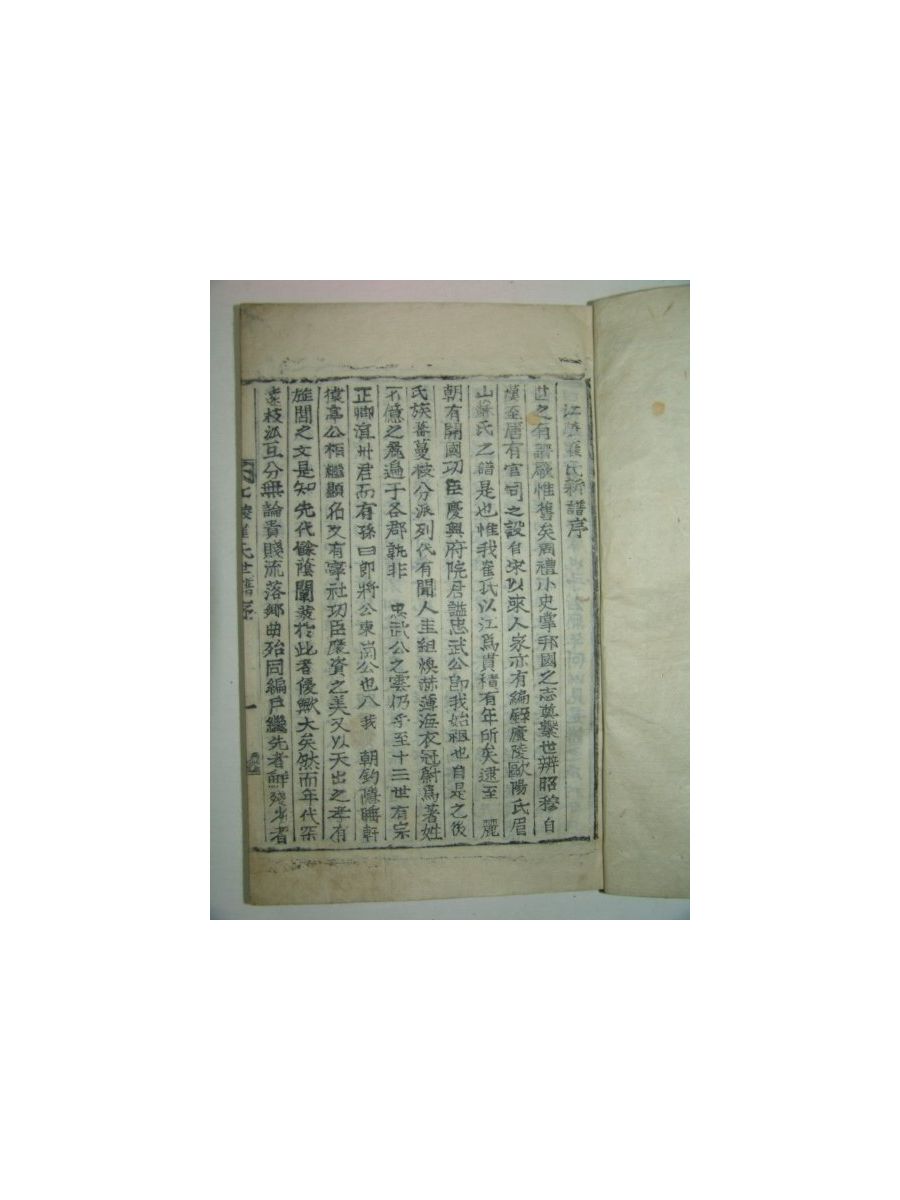 江陵崔氏新譜序
世之有譜厥惟舊矣周禮小史掌邦國之志奠繫世辨昭穆自
漢至唐有官司之設自宋以來人家亦有編廬陵歐陽氏眉
山蘇氏之譜是也惟我崔氏以江爲貫積有年所矣逮至 麗
朝有開國功臣慶興府院君諡忠武公卽我始祖也自是之後
氏族蕃蔓枝分派列代有聞人圭組煥赫薄海衣冠蔚爲著姓
不億之麗遍于各郡孰非 忠武公之雲仍乎至十三世有宗
正卿 州君而有孫曰郎將公東崗公也入我 朝釣隱睡軒
猿亭公相繼顯名又有寧社功臣慶資之美又以天出之孝有
旌閭之文是知先代餘蔭闡發於此者優歟大矣然而年代
遠枝派互分無論貴賤流落鄕曲殆同編戶繼先者鮮 者
崔氏世譜序
一